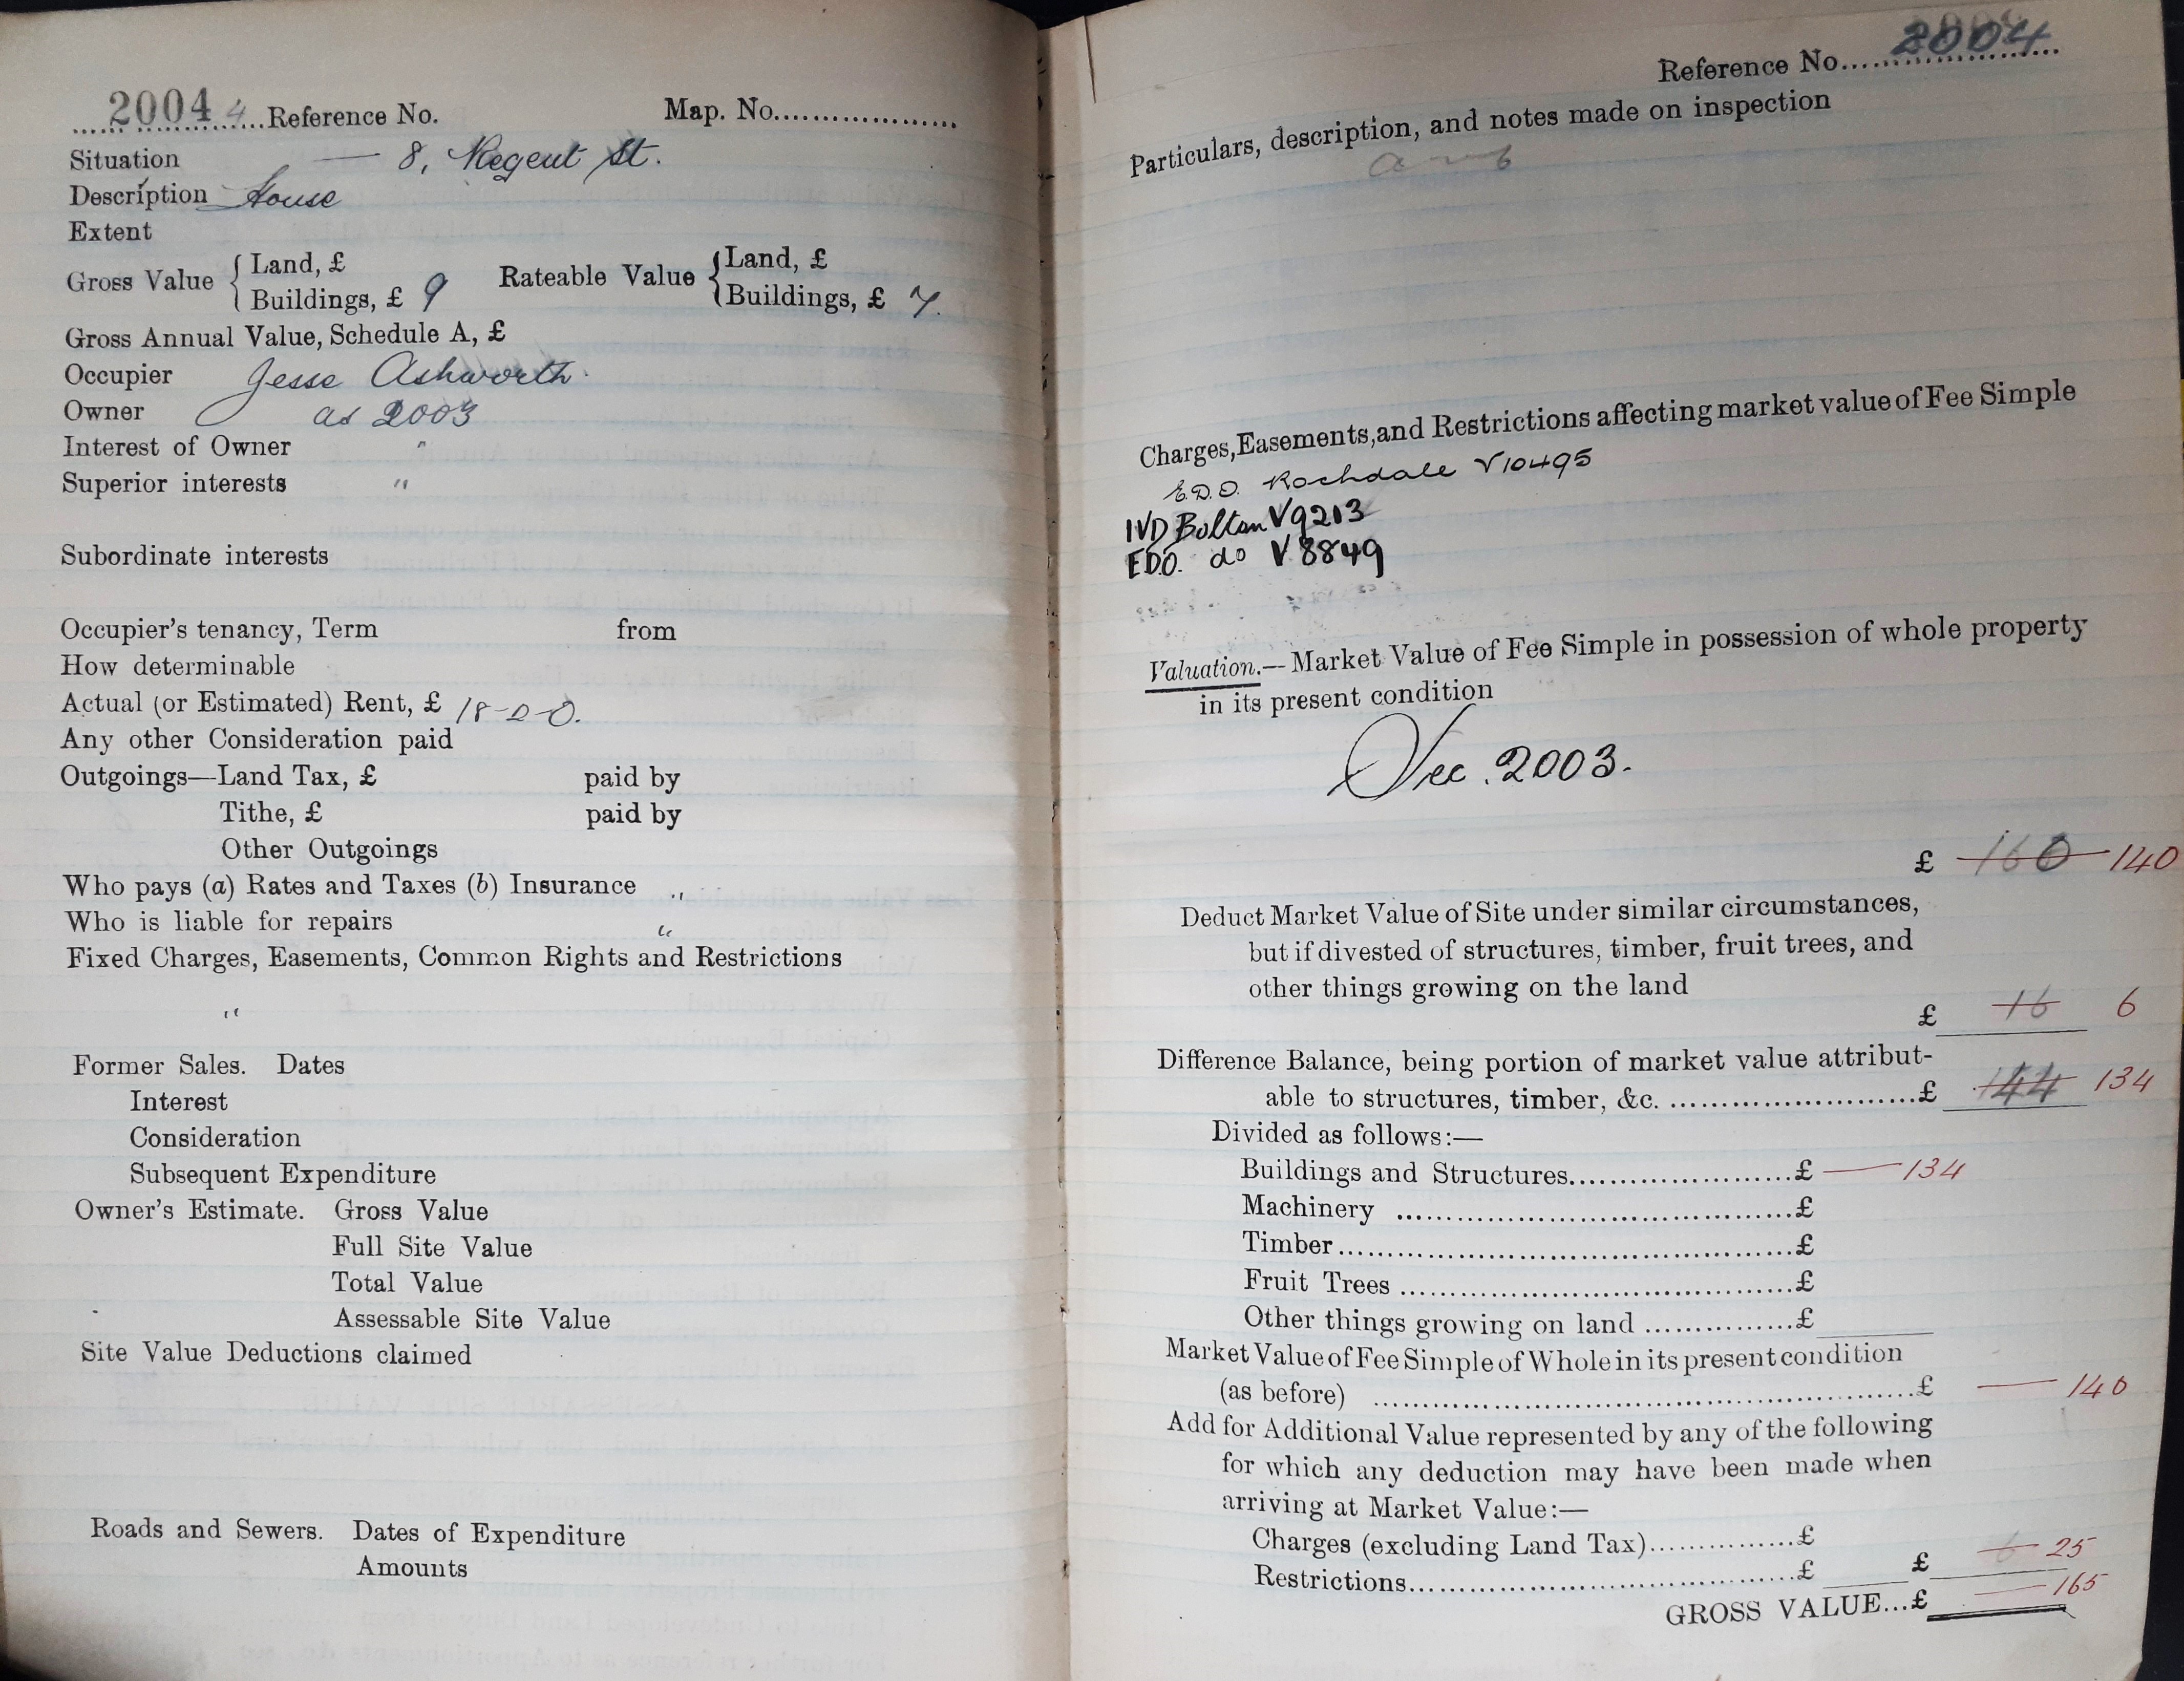 2004 4 Reference No. Map. No.
Situation — 8, Regent St.
Description House
Extent
Gross Value { Land, £ Rateable Value { Land, £
Buildings, £ 9 Buildings, £ 7.
Gross Annual Value, Schedule A, £
Occupier Jesse Ashworth
Owner as 2003
Interest of Owner "
Superior interests "
Subordinate interests
Occupier's tenancy, Term from
How determinable
Actual (or Estimated) Rent, £ 18-2-0.
Any other Consideration paid
Outgoings—Land Tax, £ paid by
Tithe, £ paid by
Other Outgoings
Who pays (a) Rates and Taxes (b) Insurance "
Who is liable for repairs "
Fixed Charges, Easements, Common Rights and Restrictions
"
Former Sales. Dates
Interest
Consideration
Subsequent Expenditure
Owner's Estimate. Gross Value
Full Site Value
Total Value
Assessable Site Value
Site Value Deductions claimed
Roads and Sewers. Dates of Expenditure
Amounts
Reference No. 2004
Particulars, description, and notes made on inspection
Charges, Easements, and Restrictions affecting market value of Fee Simple
E.D.O. Rochdale V10495
IVD Bolton V9213
E.D.O. do V8849
Valuation.—Market Value of Fee Simple in possession of whole property
in its present condition
Vec. 2003.
£ 160 140
Deduct Market Value of Site under similar circumstances,
but if divested of structures, timber, fruit trees, and
other things growing on the land
£ 16 6
Difference Balance, being portion of market value attribut-
able to structures, timber, &c. £ 144 134
Divided as follows:—
Buildings and Structures £ — 134
Machinery £
Timber £
Fruit Trees £
Other things growing on land £
Market Value of Fee Simple of Whole in its present condition
(as before) £ — 140
Add for Additional Value represented by any of the following
for which any deduction may have been made when
arriving at Market Value:—
Charges (excluding Land Tax) £
Restrictions £ £ 6 25
GROSS VALUE...£ — 165